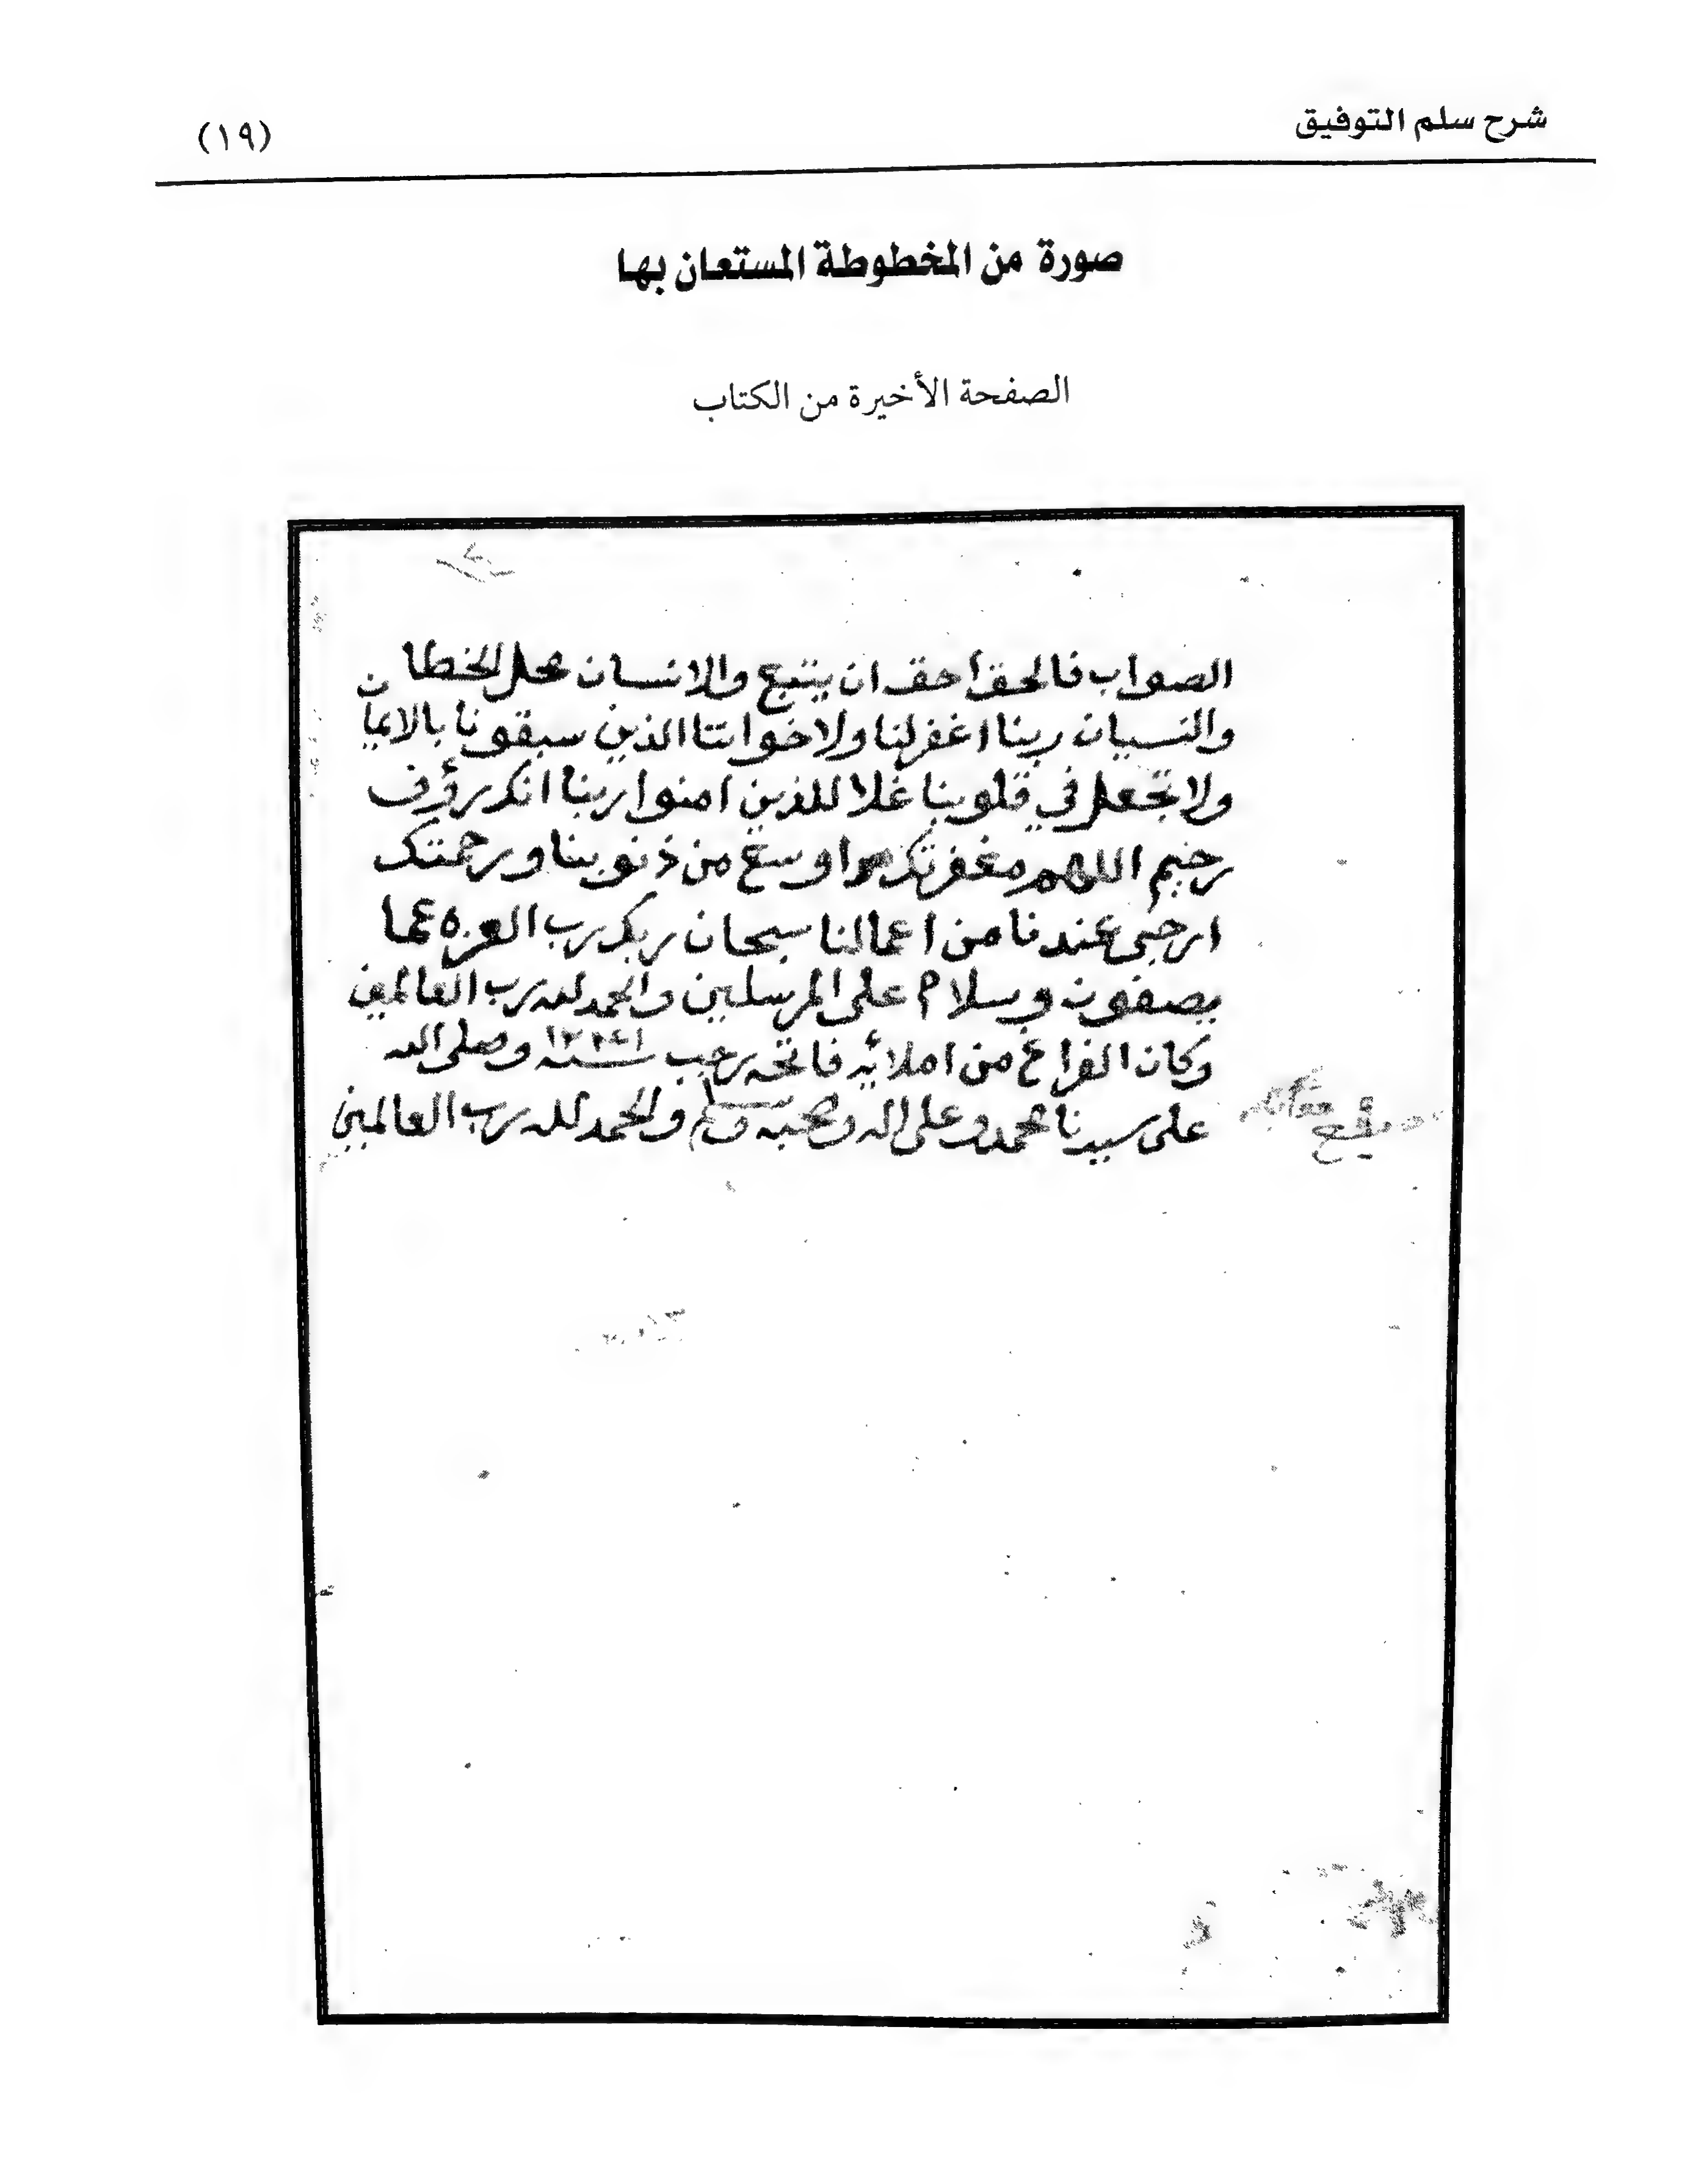 شرح سلم التوفيق
(١٩)
صورة من المخطوطة المستعان بها
الصفحة الأخيرة من الكتاب
الصواب فالحق احق ان يتبع والانسان محل الخطا
والنسيان ربنا اغفرلنا ولاخواننا الذين سبقونا بالايمان
ولا تجعل في قلوبنا غلا للذين امنوا ربنا انك رؤف
رحيم اللهم مغفرتك اوسع من ذنوبنا ورحمتك
ارجى عندنا من اعمالنا سبحان ربك رب العزه عما
يصفون وسلام على المرسلين والحمد لله رب العالمين
وكان الفراغ من املائه فاتحه رجب سنه ١٢٤١ وصلى الله
على سيدنا محمد وعلى اله وصحبه وسلم والحمد لله رب العالمين